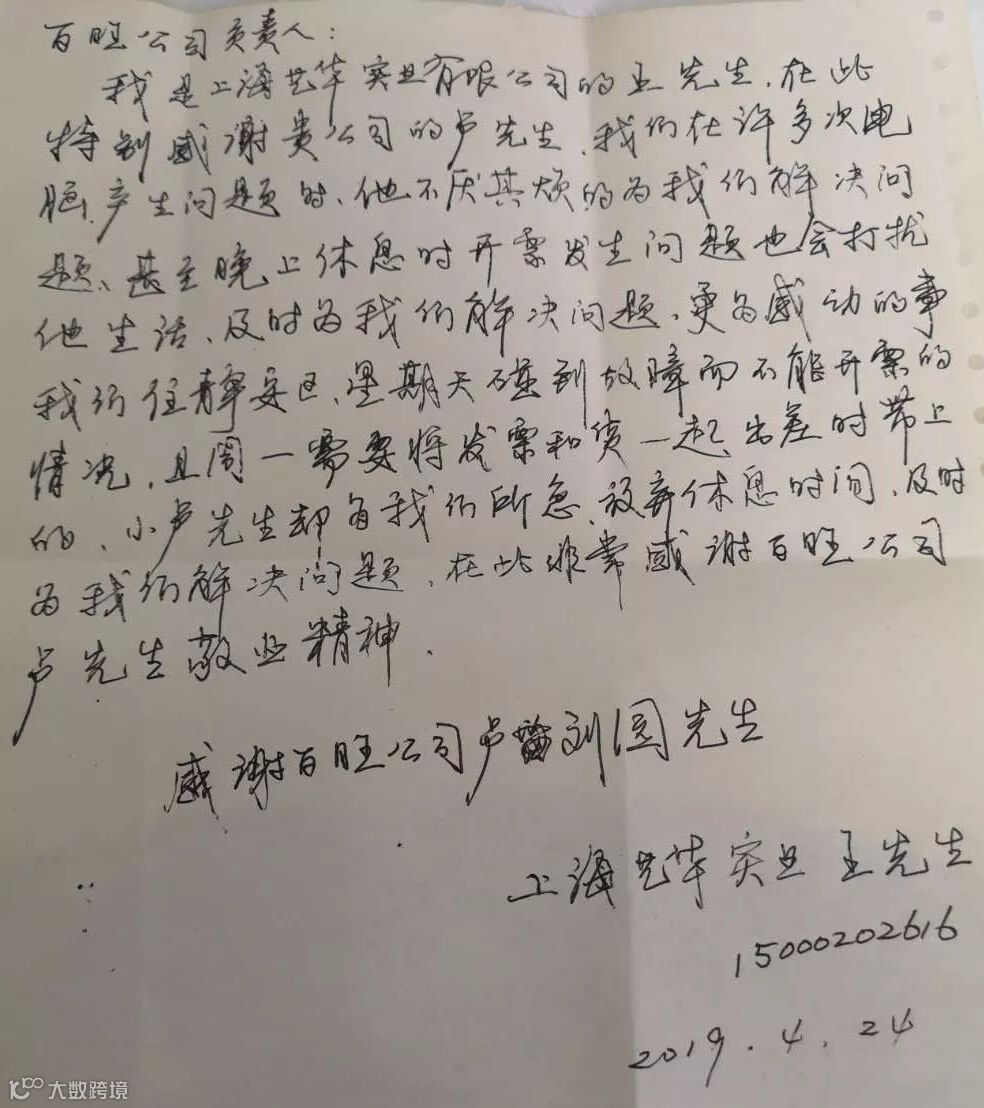 百旺公司负责人:
我是上海艺华实业有限公司的王先生.在此
特别感谢贵公司的卢先生.我们在许多次电
脑产生问题时、他不厌其烦的为我们解决问
题、甚至晚上休息时开票发生问题也会打扰
他生活、及时为我们解决问题、更为感动的事
我们住静安区、星期天碰到故障而不能开票的
情况,且周一需要将发票和货一起出差时带上
的、小卢先生却为我们所急、放弃休息时间、及时
为我们解决问题、在此非常感谢百旺公司
卢先生敬业精神.
感谢百旺公司卢刘国先生
上海艺华实业 王先生
15000202616
2019.4.24
大数跨境